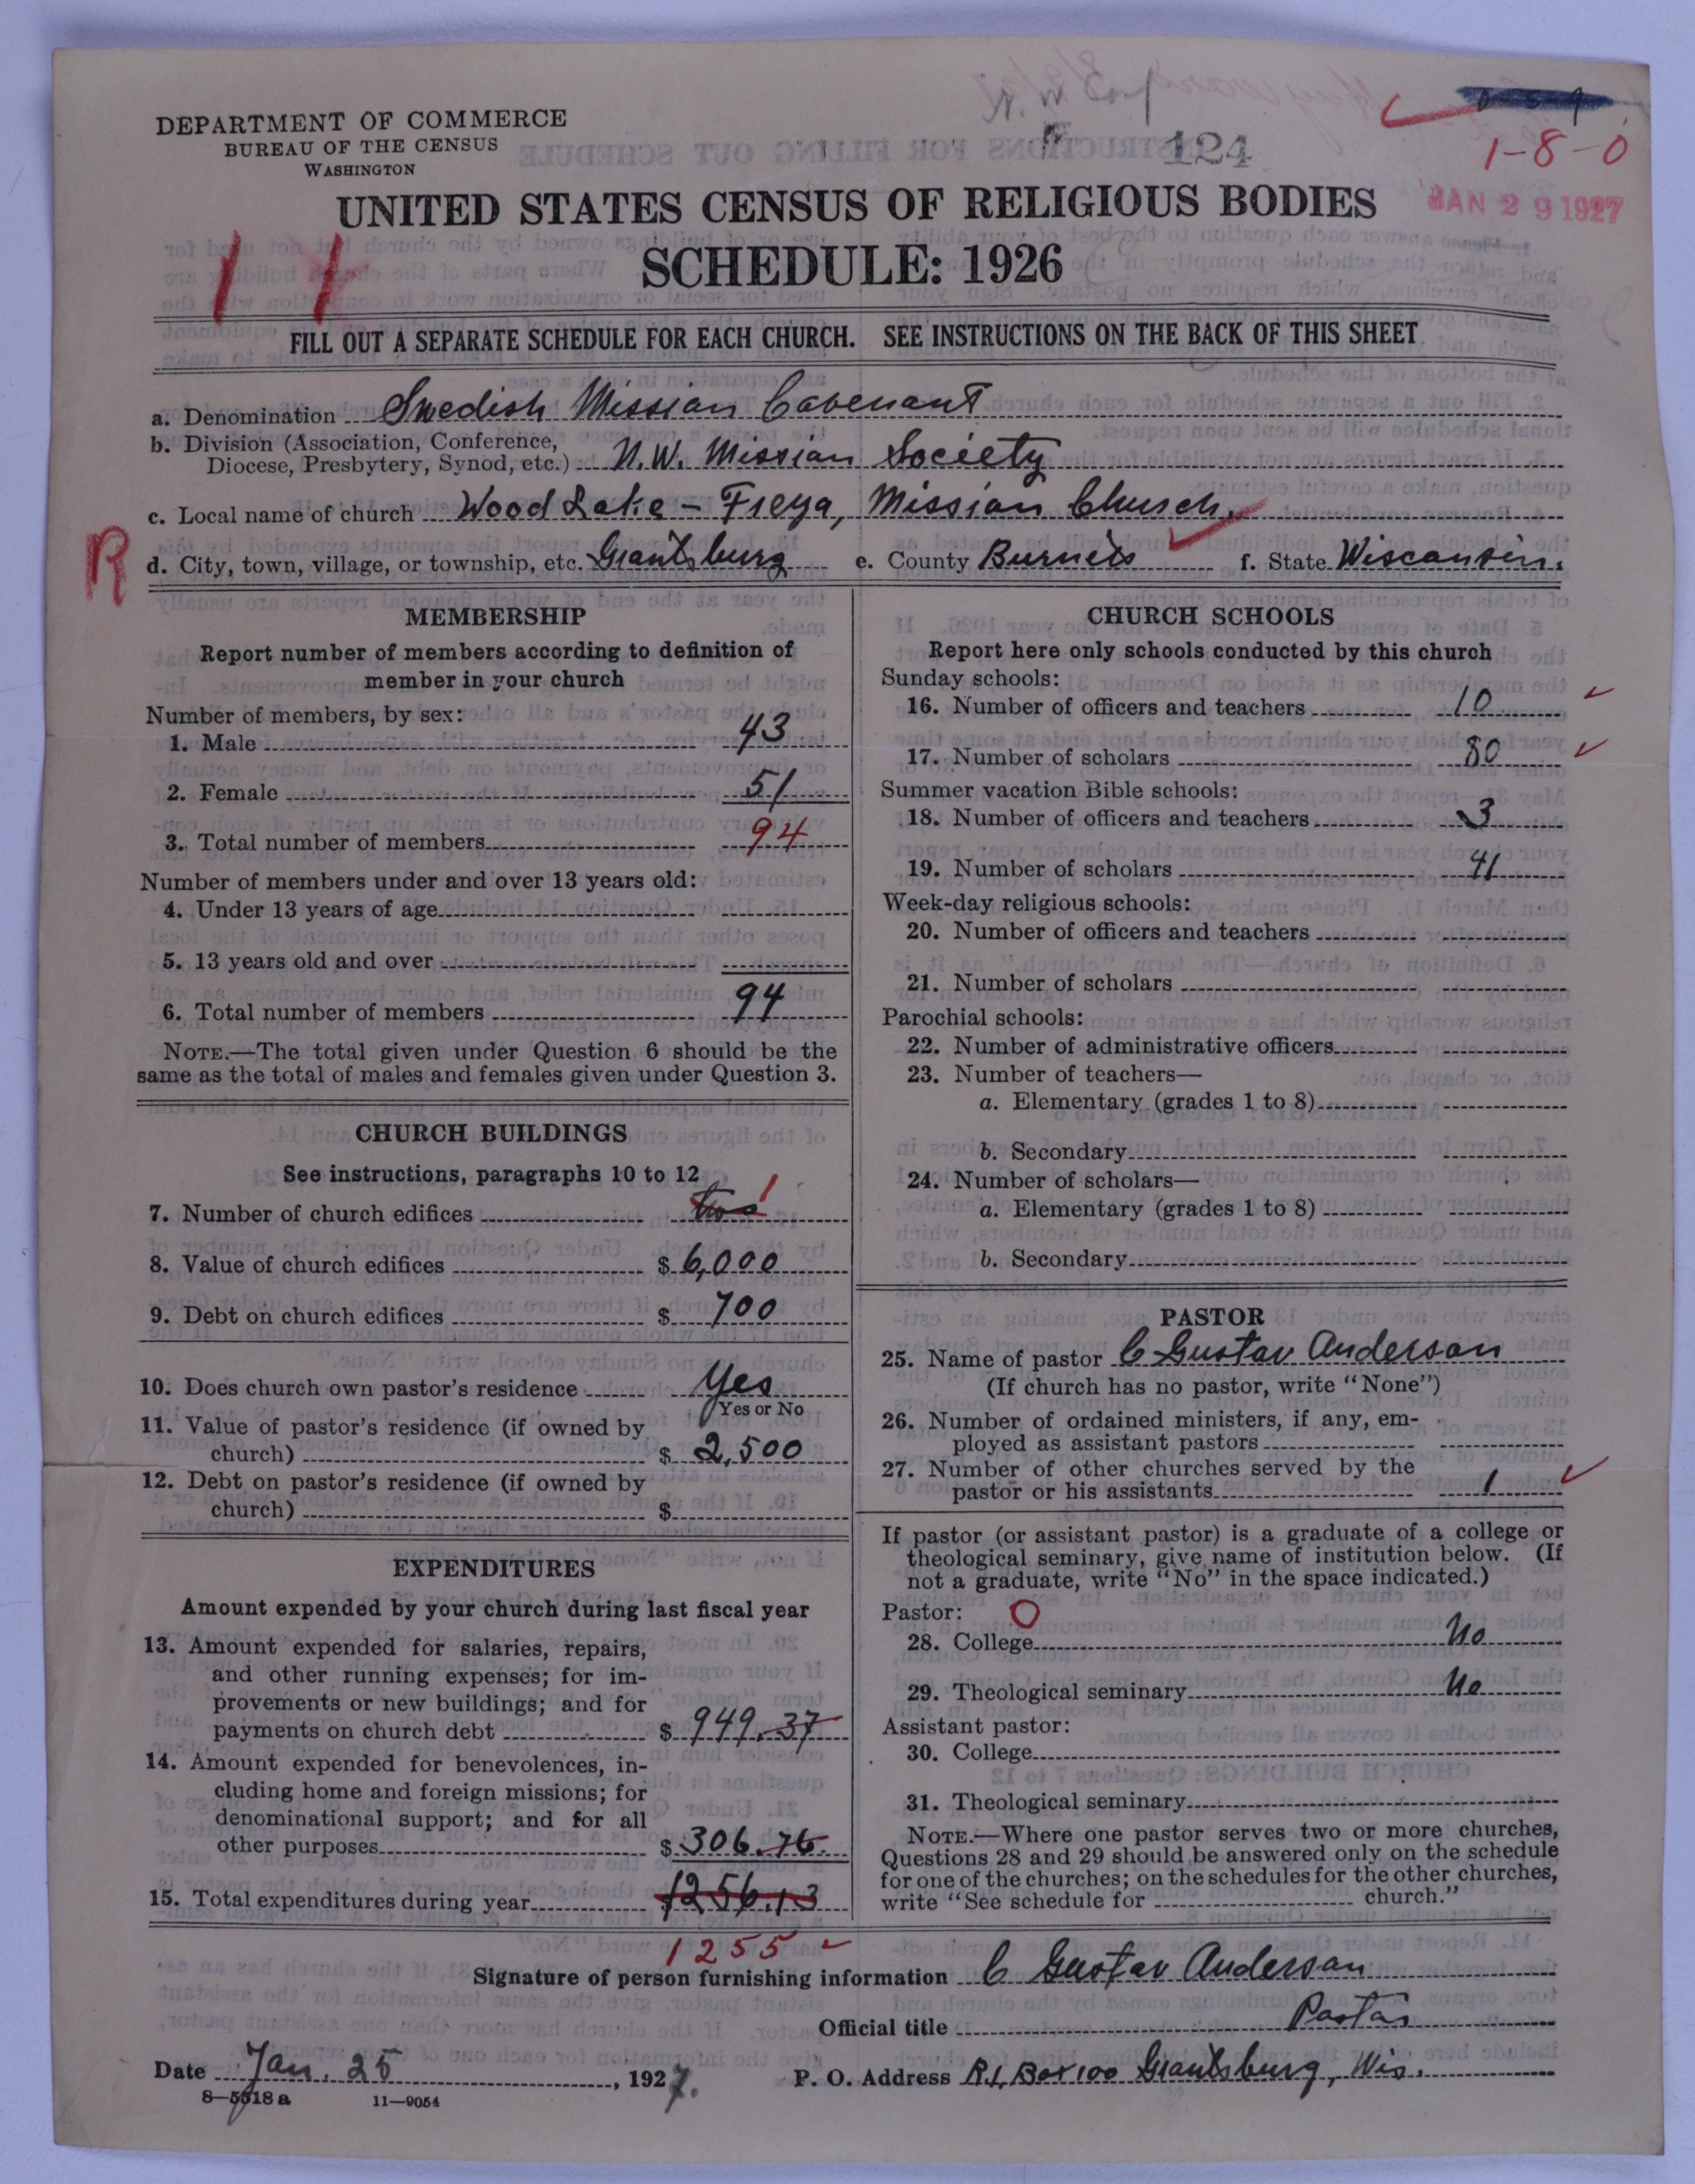 DEPARTMENT OF COMMERCE
BUREAU OF THE CENSUS
WASHINGTON
124
1-8-0
JAN 29 1927
UNITED STATES CENSUS OF RELIGIOUS BODIES
SCHEDULE: 1926
FILL OUT A SEPARATE SCHEDULE FOR EACH CHURCH. SEE INSTRUCTIONS ON THE BACK OF THIS SHEET
a. Denomination Swedish Mission Covenant
b. Division (Association, Conference,
Diocese, Presbytery, Synod, etc.) N.W. Mission Society
c. Local name of church Wood Lake - Freya, Mission Church.
R
d. City, town, village, or township, etc. Grantsburg e. County Burnett f. State Wisconsin.
MEMBERSHIP
Report number of members according to definition of
member in your church
Number of members, by sex:
1. Male 43
2. Female 51
3. Total number of members 94
Number of members under and over 13 years old:
4. Under 13 years of age
5. 13 years old and over
6. Total number of members 94
NOTE.—The total given under Question 6 should be the
same as the total of males and females given under Question 3.
CHURCH BUILDINGS
See instructions, paragraphs 10 to 12
7. Number of church edifices two 1
8. Value of church edifices $ 6,000
9. Debt on church edifices $ 700
10. Does church own pastor's residence Yes
Yes or No
11. Value of pastor's residence (if owned by
church) $ 2,500
12. Debt on pastor's residence (if owned by
church) $
EXPENDITURES
Amount expended by your church during last fiscal year
13. Amount expended for salaries, repairs,
and other running expenses; for im-
provements or new buildings; and for
payments on church debt $ 949.37
14. Amount expended for benevolences, in-
cluding home and foreign missions; for
denominational support; and for all
other purposes $ 306.76
15. Total expenditures during year $1256.13
1255
CHURCH SCHOOLS
Report here only schools conducted by this church
Sunday schools:
16. Number of officers and teachers 10
17. Number of scholars 80
Summer vacation Bible schools:
18. Number of officers and teachers 3
19. Number of scholars 41
Week-day religious schools:
20. Number of officers and teachers
21. Number of scholars
Parochial schools:
22. Number of administrative officers
23. Number of teachers—
a. Elementary (grades 1 to 8)
b. Secondary
24. Number of scholars—
a. Elementary (grades 1 to 8)
b. Secondary
PASTOR
25. Name of pastor C Gustav Anderson
(If church has no pastor, write "None")
26. Number of ordained ministers, if any, em-
ployed as assistant pastors
27. Number of other churches served by the
pastor or his assistants 1
If pastor (or assistant pastor) is a graduate of a college or
theological seminary, give name of institution below. (If
not a graduate, write "No" in the space indicated.)
Pastor: O
28. College No
29. Theological seminary No
Assistant pastor:
30. College
31. Theological seminary
NOTE.—Where one pastor serves two or more churches,
Questions 28 and 29 should be answered only on the schedule
for one of the churches; on the schedules for the other churches,
write "See schedule for church."
Signature of person furnishing information C Gustav Anderson
Official title Pastor
Date Jan. 25, 1927. P. O. Address R.1, Box 100 Grantsburg, Wis.
8—5518 a 11—9054